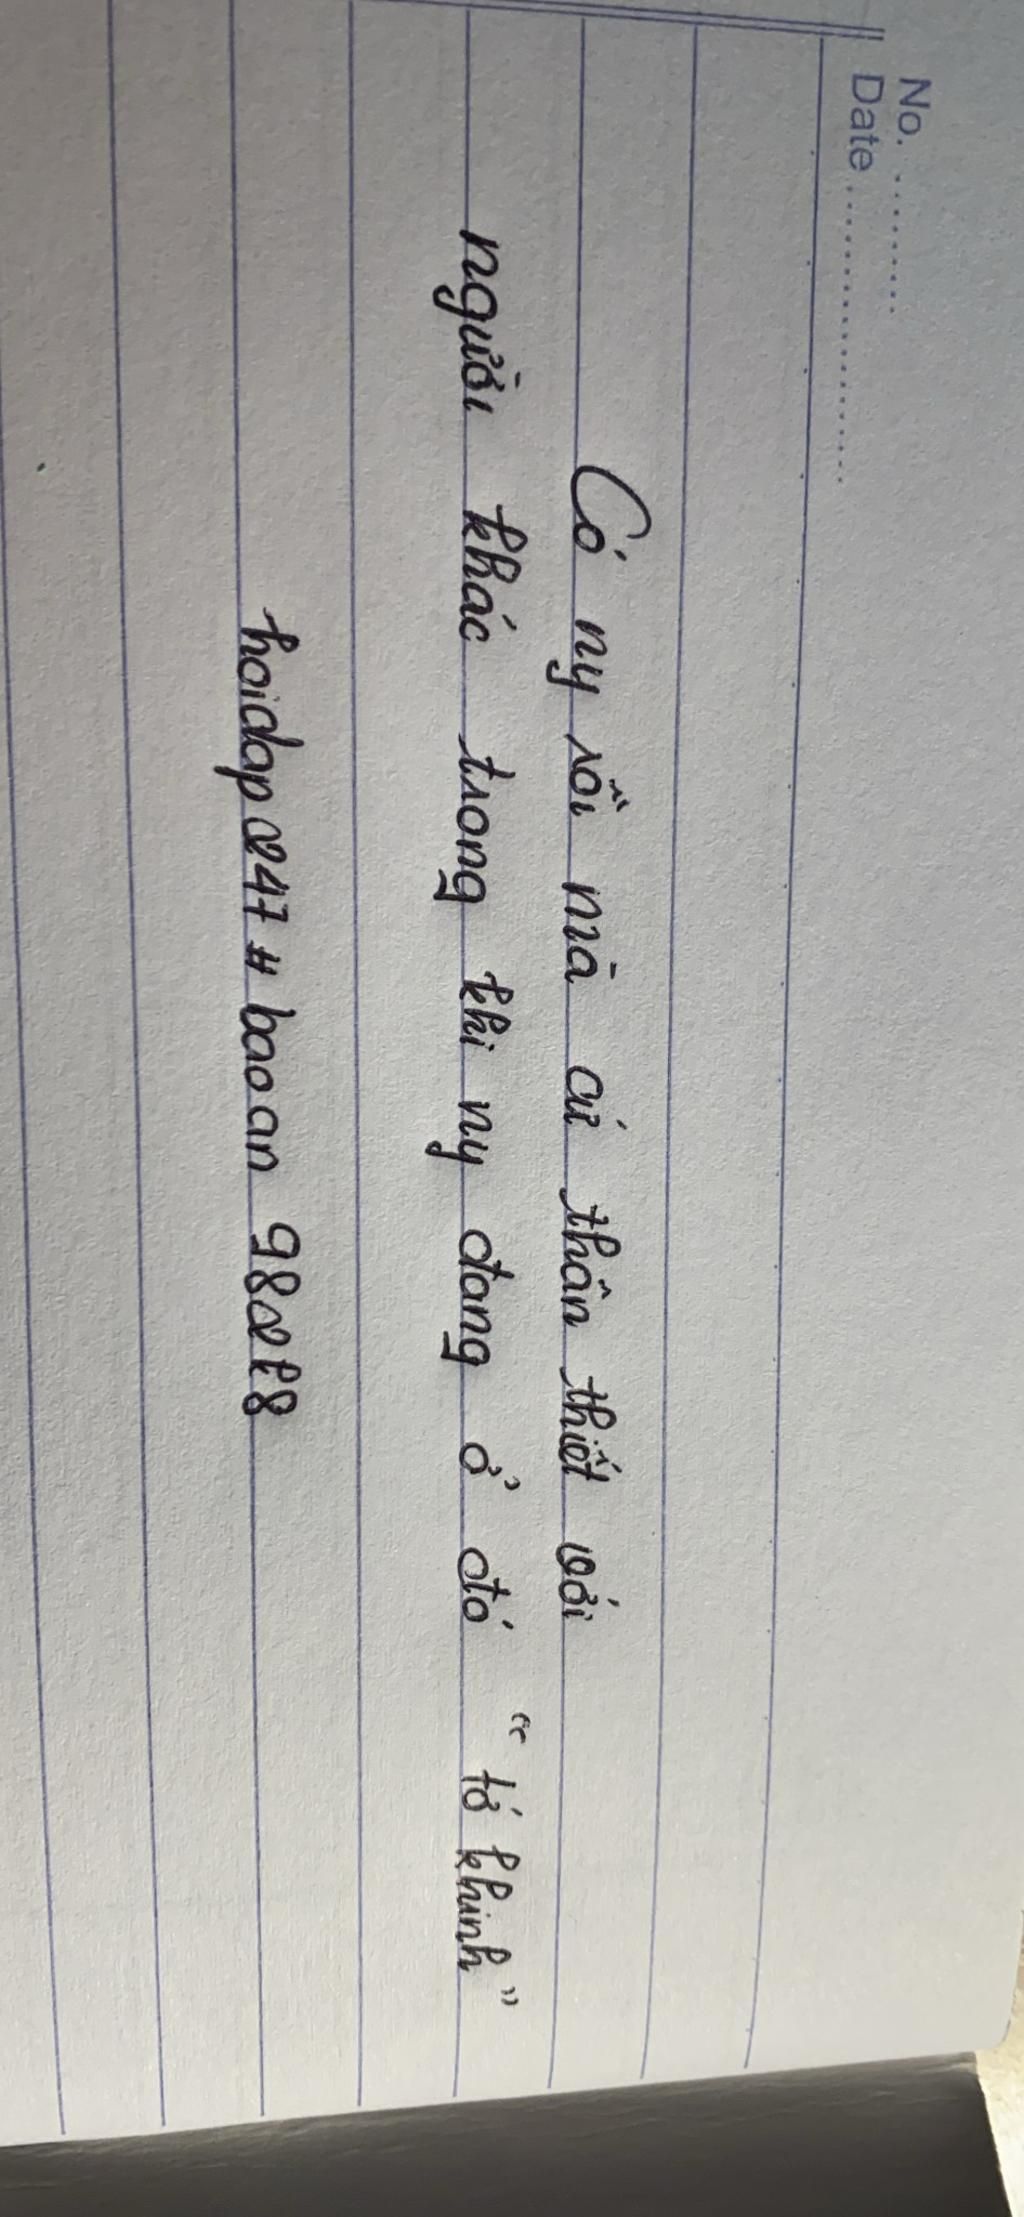 No. .........
Date ......................
Có ny rồi mà cứ thân thiết với
người khác trong khi ny đang ở đó "tớ khinh"
hoidap247 # baoan 982k8